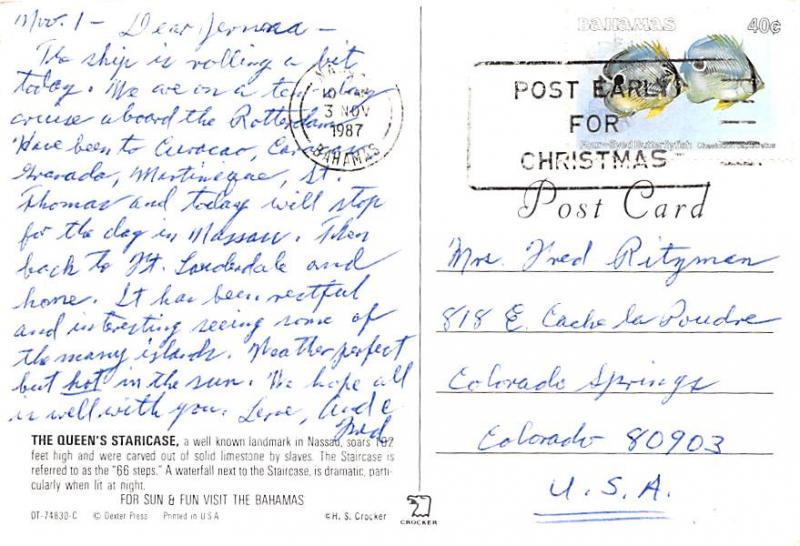 Nov. 1 - Dear Jernora -
The ship is rolling a bit
today. We are on a ten-day
cruise aboard the Rotterdam.
Have been to Curacao, Caracas
Granada, Martineque, St.
Thomas and today will stop
for the day in Nassau. Then
back to Ft. Lauderdale and
home. It has been restful
and interesting seeing some of
the many islands. Weather perfect
but hot in the sun. We hope all
is well with you. Love,
Fred
THE QUEEN'S STARICASE, a well known landmark in Nassau, soars 102
feet high and were carved out of solid limestone by slaves. The Staircase is
referred to as the "66 steps." A waterfall next to the Staircase, is dramatic, parti-
cularly when lit at night.
FOR SUN & FUN VISIT THE BAHAMAS
DT-74830-C © Dexter Press Printed in U S A
©H. S. Crocker
CROCKER
3 NOV
1987
BAHAMAS
BAHAMAS 40¢
POST EARLY
FOR
CHRISTMAS
Four-Eyed Butterflyfish
Post Card
Mrs. Fred Ritzman
818 E. Cache la Poudre
Colorado Springs
Colorado 80903
U.S.A.